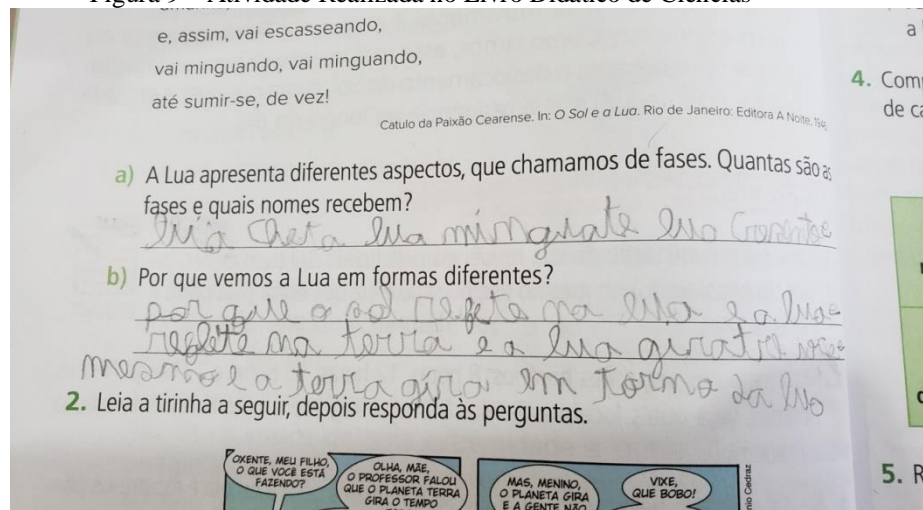 e, assim, vai escasseando,
vai minguando, vai minguando,
até sumir-se, de vez!
Catulo da Paixão Cearense. In: O Sol e a Lua. Rio de Janeiro: Editora A Noite,
a) A Lua apresenta diferentes aspectos, que chamamos de fases. Quantas são as
fases e quais nomes recebem?
lua cheta lua minguate lua
b) Por que vemos a Lua em formas diferentes?
por que o sol refete na lua e a lua
reglete na terra e a lua
mesmo e a terra gira em torno da lua
2. Leia a tirinha a seguir, depois responda às perguntas.
OXENTE, MEU FILHO,
O QUE VOCÊ ESTÁ
FAZENDO?
OLHA, MÃE,
O PROFESSOR FALOU
QUE O PLANETA TERRA
GIRA O TEMPO
MAS, MENINO,
O PLANETA GIRA
E A GENTE NÃO
VIXE,
QUE BOBO!
a
4. Com
de ca
5. R